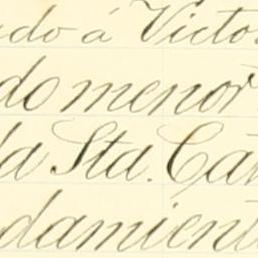 do á Victo
do menor
la Sta. Cat
damient